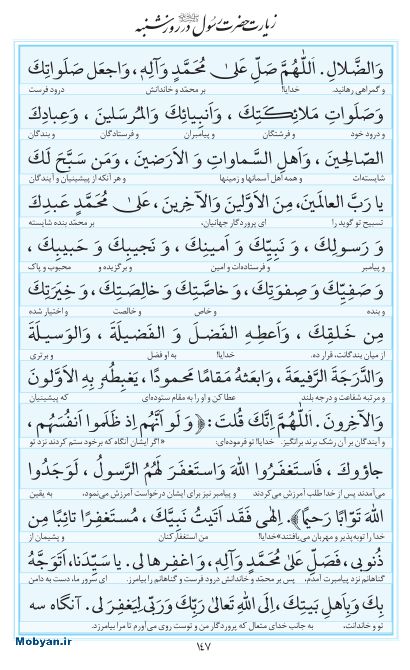 زیارت حضرت رسول ﷺ در روز شنبه
وَالضَّلالِ. اَللّٰهُمَّ صَلِّ عَلىٰ مُحَمَّدٍ وَآلِهِ، وَاجعَل صَلَواتِكَ
و گمراهی رهانید. خدایا! بر محمّد و خاندانش درود فرست
وَصَلَواتِ مَلائِكَتِكَ، وَاَنبِيائِكَ وَالمُرسَلينَ، وَعِبادِكَ
و درود خود و فرشتگان و پیامبران و فرستادگان و بندگان
الصّالِحينَ، وَاَهلِ السَّماواتِ وَ الاَرَضينَ، وَمَن سَبَّحَ لَكَ
شایسته‌ات و همه اهل آسمانها و زمینها و هر آنکه از پیشینیان و آیندگان
يا رَبَّ العالَمينَ، مِنَ الاَوَّلينَ وَالآخِرينَ، عَلىٰ مُحَمَّدٍ عَبدِكَ
تسبیح تو گوید را ای پروردگار جهانیان، بر محمّد بنده شایسته
وَ رَسولِكَ، وَ نَبِيِّكَ وَ اَمينِكَ، وَ نَجيبِكَ وَ حَبيبِكَ،
و پیامبر و فرستاده‌ات و امین و برگزیده و محبوب و پاک
وَ صَفِيِّكَ وَ صِفوَتِكَ، وَ خاصَّتِكَ وَ خالِصَتِكَ، وَ خِيَرَتِكَ
و بنده و خاص و خالصت و اختیار شده
مِن خَلقِكَ، وَ اَعطِهِ الفَضلَ وَ الفَضيلَةَ، وَالوَسيلَةَ
از میان بندگانت، قرار ده. خدایا! به او فضل و برتری
وَالدَّرَجَةَ الرَّفيعَةَ، وَابعَثهُ مَقامًا مَحمودًا، يَغبِطُهُ بِهِ الاَوَّلونَ
و مرتبه شفاعت و درجه بلند عطا کن و او را به مقام ستوده‌ای که پیشینیان
وَالآخِرونَ. اَللّٰهُمَّ اِنَّكَ قُلتَ: ﴿وَ لَو اَنَّهُم اِذ ظَلَموا اَنفُسَهُم،
و آیندگان بر آن رشک برند برانگیز. خدایا! تو فرموده‌ای: «اگر ایشان آنگاه که برخود ستم کردند نزد تو
جاؤوكَ، فَاستَغفَرُوا اللهَ وَاستَغفَرَ لَهُمُ الرَّسولُ، لَوَجَدُوا
می‌آمدند پس از خدا طلب آمرزش می‌کردند و پیامبر نیز برای ایشان درخواست آمرزش می‌نمود، به یقین
اللهَ تَوّابًا رَحيمًا﴾. اِلٰهى فَقَد اَتَيتُ نَبِيَّكَ، مُستَغفِرًا تائِبًا مِن
خدا را توبه‌پذیر و مهربان می‌یافتند» خدایا! من استغفارکنان و پشیمان از
ذُنوبى، فَصَلِّ عَلىٰ مُحَمَّدٍ وَآلِهِ، وَ اغفِرها لى. يا سَيِّدَنا، اَتَوَجَّهُ
گناهانم نزد پیامبرت آمدم، پس بر محمّد و خاندانش درود فرست و گناهانم را بیامرز. ای سرور ما، دست به دامن
بِكَ وَبِاَهلِ بَيتِكَ، اِلَى اللهِ تَعالىٰ رَبِّكَ وَرَبّى لِيَغفِرَ لى. آنگاه سه
تو و خاندانت، به جانب خدای متعال که پروردگار من و توست روی می‌آورم تا مرا بیامرزد.
۱۴۷
Mobyan.ir